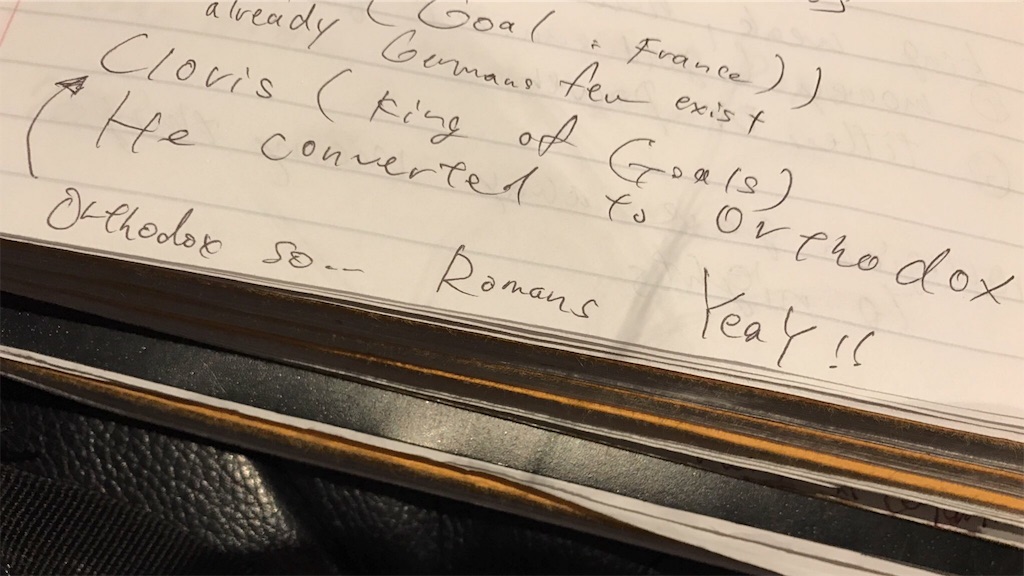 already (Goal : France))
Germans few exist
Cloris (king of Goals)
He converted to Orthodox
Orthodox so-- Romans Yeay!!